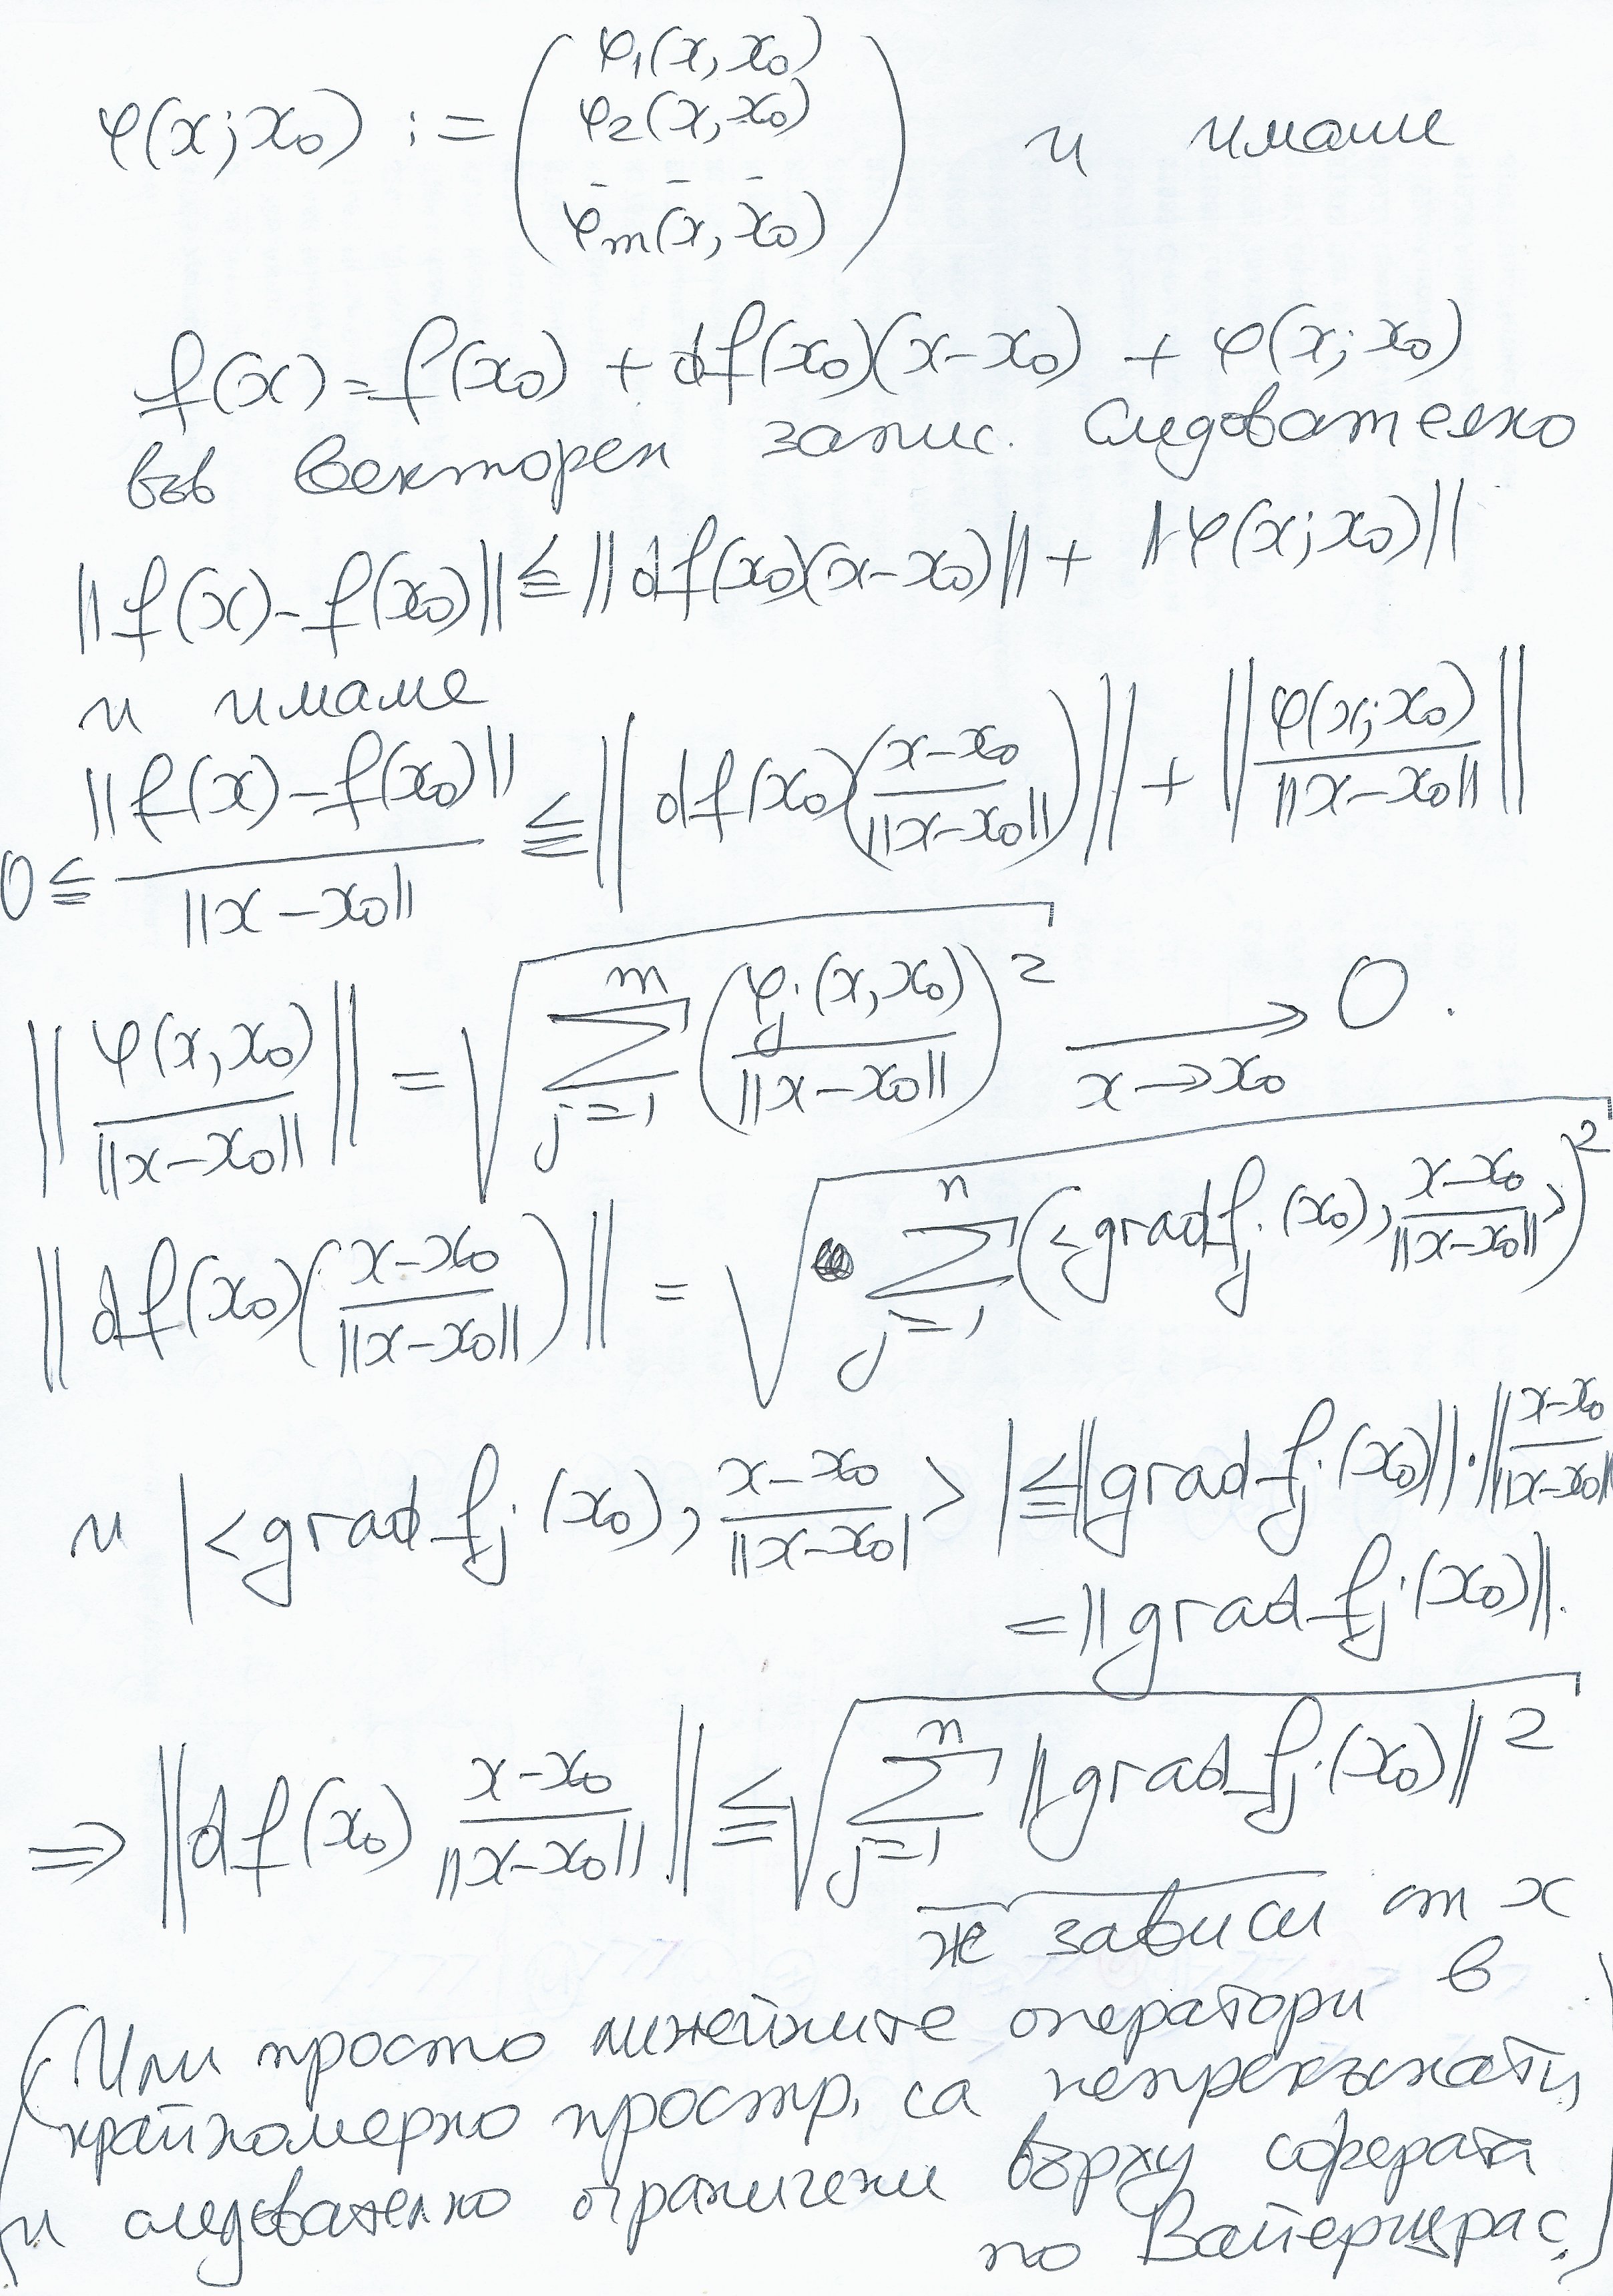 φ(x;x₀) := ( φ₁(x,x₀)
φ₂(x,x₀)
- - -
φm(x,x₀) ) и имаме
f(x) = f(x₀) + df(x₀)(x-x₀) + φ(x;x₀)
във векторен запис. Следователно
||f(x)-f(x₀)|| ≦ ||df(x₀)(x-x₀)|| + ||φ(x;x₀)||
и имаме
0 ≦ ||f(x)-f(x₀)|| / ||x-x₀|| ≦ || df(x₀)( (x-x₀) / ||x-x₀|| ) || + || φ(x;x₀) / ||x-x₀|| ||
|| φ(x,x₀) / ||x-x₀|| || = √( ∑_{j=1}^{m} ( φj(x,x₀) / ||x-x₀|| )² ) → 0. x→x₀
|| df(x₀)( (x-x₀) / ||x-x₀|| ) || = √( ∑_{j=1}^{n} ( <grad fj(x₀), (x-x₀) / ||x-x₀|| > )² )
и |<grad fj(x₀), (x-x₀) / ||x-x₀| >| ≦ ||grad fj(x₀)||·|| (x-x₀) / ||x-x₀||
= ||grad fj(x₀)||.
⇒ || df(x₀) (x-x₀) / ||x-x₀|| || ≦ √( ∑_{j=1}^{n} ||grad fj(x₀)||² )
не зависи от x
(Или просто линейните оператори в
крайномерно простр. са непрекъснати,
и следователно ограничени върху сферата
по Вайерщрас.)